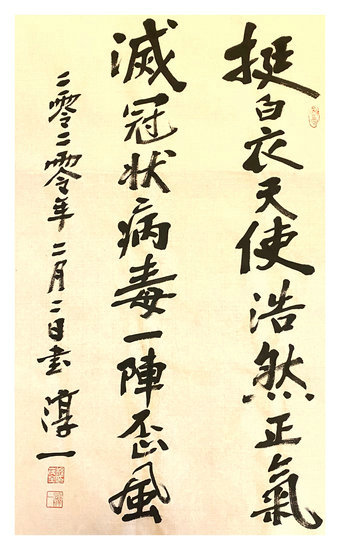 挺白衣天使浩然正氣
滅冠状病毒一陣歪風
二零二零年二月二日書 淳一